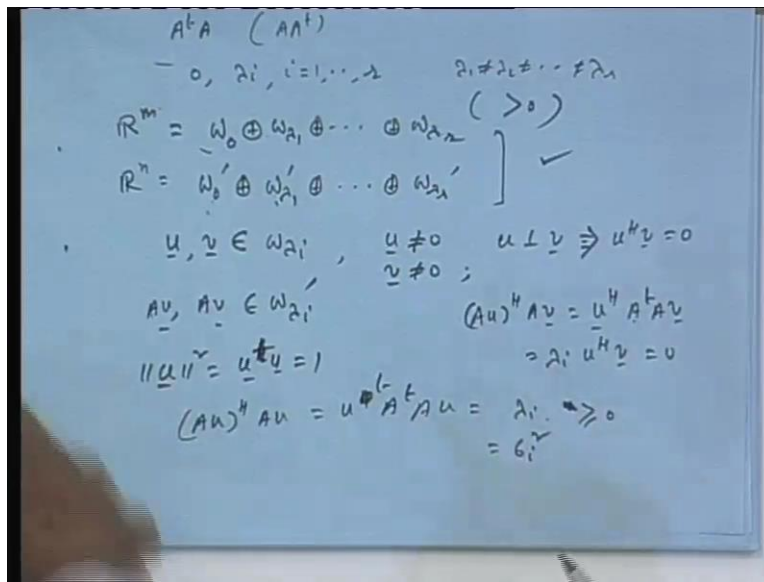 AᵗA (AAᵗ)
0, λi, i=1,..,r λ1≠λ2≠...≠λr
(>0)
ℝᵐ = W₀ ⊕ Wλ1 ⊕ ... ⊕ Wλr
ℝⁿ = W₀′ ⊕ Wλ1′ ⊕ ... ⊕ Wλr′ ] ✓
u, v ∈ Wλi , u ≠ 0 u ⊥ v ⇒ uᴴv = 0
v ≠ 0 ;
Au, Av ∈ Wλi′ (Au)ᴴ Av = uᴴ AᵗAv
= λi uᴴv = 0
||u||² = uᵗu = 1
(Au)ᴴ Au = uᵗAᵗAu = λi ≥ 0
= σi²